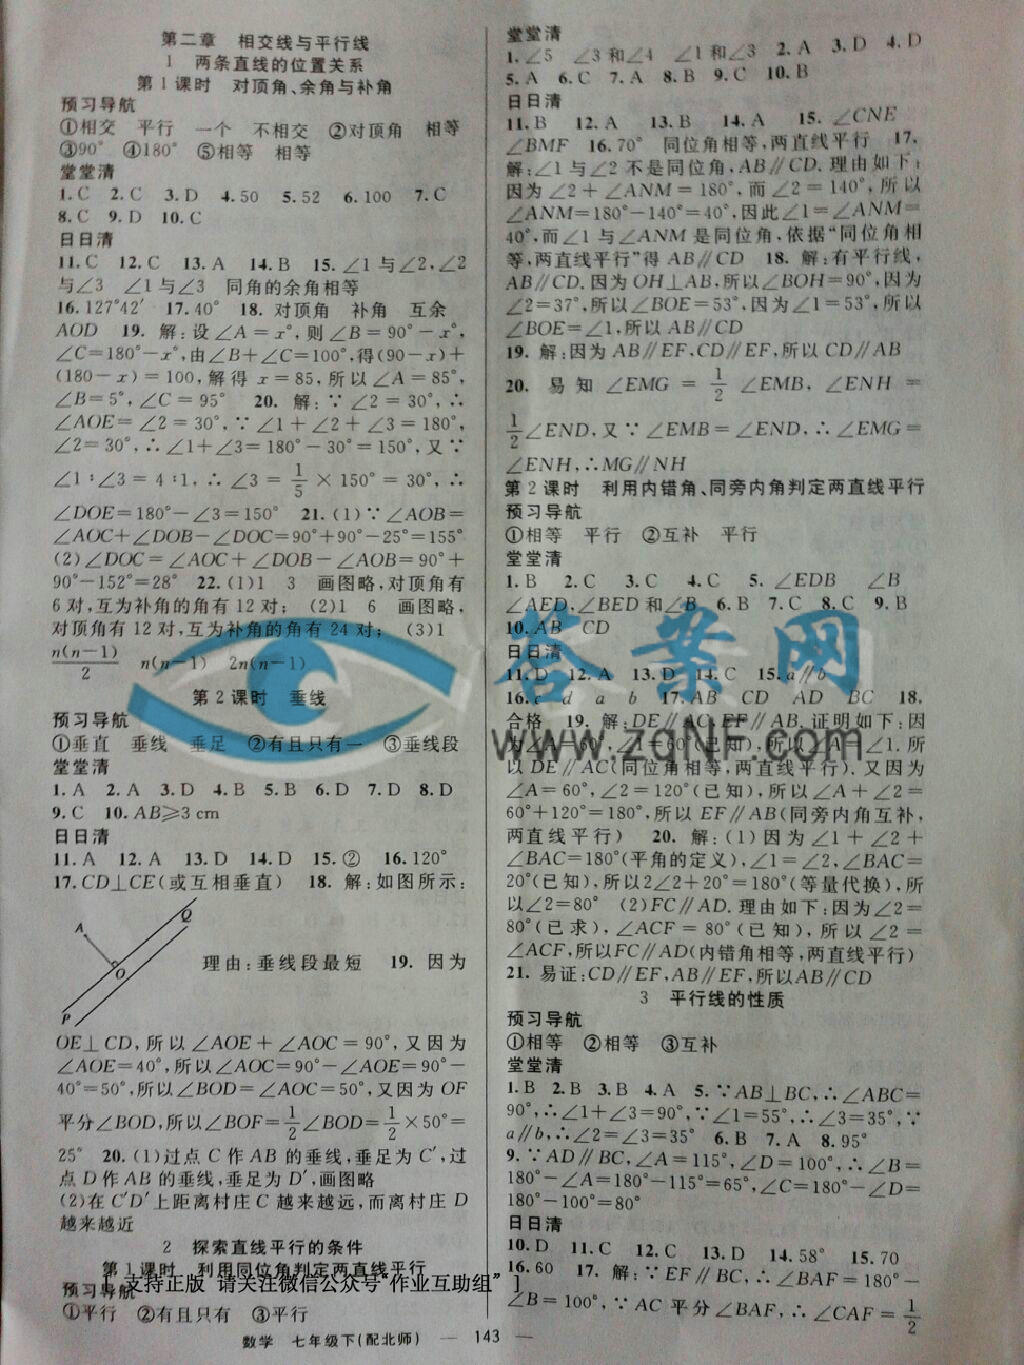 第二章 相交线与平行线
1 两条直线的位置关系
第1课时 对顶角、余角与补角
预习导航
①相交 平行 一个 不相交 ②对顶角 相等
③90° ④180° ⑤相等 相等
堂堂清
1.C 2.C 3.D 4.50 5.52 6.100 7.C
8.C 9.D 10.C
日日清
11.C 12.C 13.A 14.B 15.∠1与∠2,∠2
与∠3 ∠1与∠3 同角的余角相等
16.127°42′ 17.40° 18.对顶角 补角 互余
AOD 19.解:设∠A=x°,则∠B=90°-x°,
∠C=180°-x°,由∠B+∠C=100°,得(90-x)+
(180-x)=100,解得x=85,所以∠A=85°,
∠B=5°,∠C=95° 20.解:∵∠2=30°,∴
∠AOE=∠2=30°,∵∠1+∠2+∠3=180°,
∠2=30°,∴∠1+∠3=180°-30°=150°,又∵
∠1∶∠3=4∶1,∴∠3=1/5×150°=30°,∴
∠DOE=180°-∠3=150° 21.(1)∵∠AOB=
∠AOC+∠DOB-∠DOC=90°+90°-25°=155°
(2)∠DOC=∠AOC+∠DOB-∠AOB=90°+
90°-152°=28° 22.(1)1 3 画图略,对顶角有
6对,互为补角的角有12对; (2)1 6 画图略,
对顶角有12对,互为补角的角有24对; (3)1
n(n-1)/2 n(n-1) 2n(n-1)
第2课时 垂线
预习导航
①垂直 垂线 垂足 ②有且只有一 ③垂线段
堂堂清
1.A 2.A 3.D 4.B 5.B 6.D 7.D 8.D
9.C 10.AB≥3 cm
日日清
11.A 12.A 13.D 14.D 15.② 16.120°
17.CD⊥CE(或互相垂直) 18.解:如图所示:
A Q O P
理由:垂线段最短 19.因为
OE⊥CD,所以∠AOE+∠AOC=90°,又因为
∠AOE=40°,所以∠AOC=90°-∠AOE=90°-
40°=50°,所以∠BOD=∠AOC=50°,又因为OF
平分∠BOD,所以∠BOF=1/2∠BOD=1/2×50°=
25° 20.(1)过点C作AB的垂线,垂足为C′,过
点D作AB的垂线,垂足为D′,画图略
(2)在C′D′上距离村庄C越来越远,而离村庄D
越来越近
2 探索直线平行的条件
第1课时 利用同位角判定两直线平行
[ 支持正版 请关注微信公众号“作业互助组” ]
预习导航
①平行 ②有且只有 ③平行
堂堂清
1.∠5 ∠3和∠4 ∠1和∠3 2.A 3.D 4.D
5.A 6.C 7.A 8.B 9.C 10.B
日日清
11.B 12.A 13.B 14.A 15.∠CNE
∠BMF 16.70° 同位角相等,两直线平行 17.
解:∠1与∠2不是同位角,AB∥CD.理由如下:
因为∠2+∠ANM=180°,而∠2=140°,所以
∠ANM=180°-140°=40°,因此∠1=∠ANM=
40°,而∠1与∠ANM是同位角,依据“同位角相
等,两直线平行”得AB∥CD 18.解:有平行线,
AB∥CD.因为OH⊥AB,所以∠BOH=90°,因为
∠2=37°,所以∠BOE=53°,因为∠1=53°,所以
∠BOE=∠1,所以AB∥CD
19.解:因为AB∥EF,CD∥EF,所以CD∥AB
20.易知∠EMG=1/2∠EMB,∠ENH=
1/2∠END,又∵∠EMB=∠END,∴∠EMG=
∠ENH,∴MG∥NH
第2课时 利用内错角、同旁内角判定两直线平行
预习导航
①相等 平行 ②互补 平行
堂堂清
1.B 2.C 3.C 4.C 5.∠EDB ∠B
∠AED,∠BED和∠B 6.B 7.C 8.C 9.B
10.AB CD
日日清
11.D 12.A 13.D 14.C 15.a∥b
16.c d a b 17.AB CD AD BC 18.
合格 19.解:DE∥AC,EF∥AB.证明如下:因
为∠A=60°,∠1=60°(已知),所以∠A=∠1.所
以DE∥AC(同位角相等,两直线平行).又因为
∠A=60°,∠2=120°(已知),所以∠A+∠2=
60°+120°=180°,所以EF∥AB(同旁内角互补,
两直线平行) 20.解:(1)因为∠1+∠2+
∠BAC=180°(平角的定义),∠1=∠2,∠BAC=
20°(已知),所以2∠2+20°=180°(等量代换),所
以∠2=80° (2)FC∥AD.理由如下:因为∠2=
80°(已求),∠ACF=80°(已知),所以∠2=
∠ACF,所以FC∥AD(内错角相等,两直线平行)
21.易证:CD∥EF,AB∥EF,所以AB∥CD
3 平行线的性质
预习导航
①相等 ②相等 ③互补
堂堂清
1.B 2.B 3.B 4.A 5.∵AB⊥BC,∴∠ABC=
90°,∴∠1+∠3=90°,∵∠1=55°,∴∠3=35°,∵
a∥b,∴∠2=∠3=35° 6.B 7.A 8.95°
9.∵AD∥BC,∠A=115°,∠D=100°,∴∠B=
180°-∠A=180°-115°=65°,∠C=180°-∠D=
180°-100°=80°
日日清
10.D 11.C 12.D 13.D 14.58° 15.70
16.60 17.解:∵EF∥BC,∴∠BAF=180°-
∠B=100°,∵AC平分∠BAF,∴∠CAF=1/2
答案网
www.zqNF.com
数学 七年级下(配北师) — 143 —